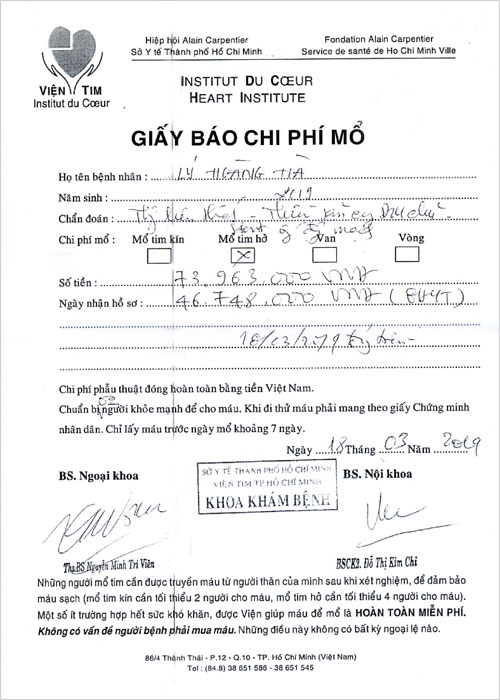 Hiệp hội Alain Carpentier
Sở Y tế Thành phố Hồ Chí Minh
Fondation Alain Carpentier
Service de santé de Ho Chi Minh Ville
VIỆN TIM
Institut du Cœur
INSTITUT DU CŒUR
HEART INSTITUTE
GIẤY BÁO CHI PHÍ MỔ
Họ tên bệnh nhân : LÝ
Năm sinh : 2019
Chẩn đoán :
Chi phí mổ : Mổ tim kín Mổ tim hở Van Vòng
X
Số tiền : 73.963.000 VNĐ
Ngày nhận hồ sơ : 46.748.000 VNĐ (BHYT)
18/03/2019
Chi phí phẫu thuật đóng hoàn toàn bằng tiền Việt Nam.
Chuẩn bị 02 người khỏe mạnh để cho máu. Khi đi thử máu phải mang theo giấy Chứng minh
nhân dân. Chỉ lấy máu trước ngày mổ khoảng 7 ngày.
Ngày 18 Tháng 03 Năm 2019
BS. Ngoại khoa
SỞ Y TẾ THÀNH PHỐ HỒ CHÍ MINH
VIỆN TIM TP HỒ CHÍ MINH
KHOA KHÁM BỆNH
BS. Nội khoa
Ths.BS Nguyễn Minh Trí Viên
BSCK2. Đỗ Thị Kim Chi
Những người mổ tim cần được truyền máu từ người thân của mình sau khi xét nghiệm, để đảm bảo
máu sạch (mổ tim kín cần tối thiểu 2 người cho máu, mổ tim hở cần tối thiểu 4 người cho máu).
Một số ít trường hợp hết sức khó khăn, được Viện giúp máu để mổ là HOÀN TOÀN MIỄN PHÍ.
Không có vấn đề người bệnh phải mua máu. Những điều này không có bất kỳ ngoại lệ nào.
86/4 Thành Thái - P.12 - Q.10 - TP. Hồ Chí Minh (Việt Nam)
Tel : (84.8) 38 651 586 - 38 651 545